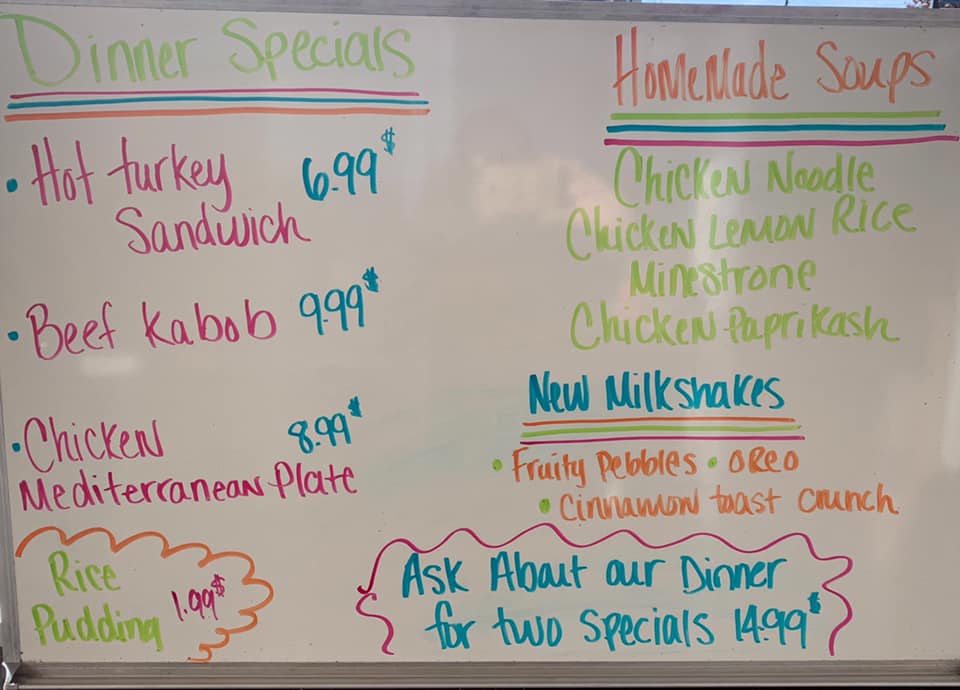 Dinner Specials
• Hot turkey 6.99$
Sandwich
• Beef Kabob 9.99$
• Chicken 8.99$
Mediterranean Plate
Rice
Pudding 1.99$
Homemade Soups
Chicken Noodle
Chicken Lemon Rice
Minestrone
Chicken Paprikash
New Milkshakes
• Fruity Pebbles • OREO
• Cinnamon toast crunch
Ask About our Dinner
for two Specials 14.99$